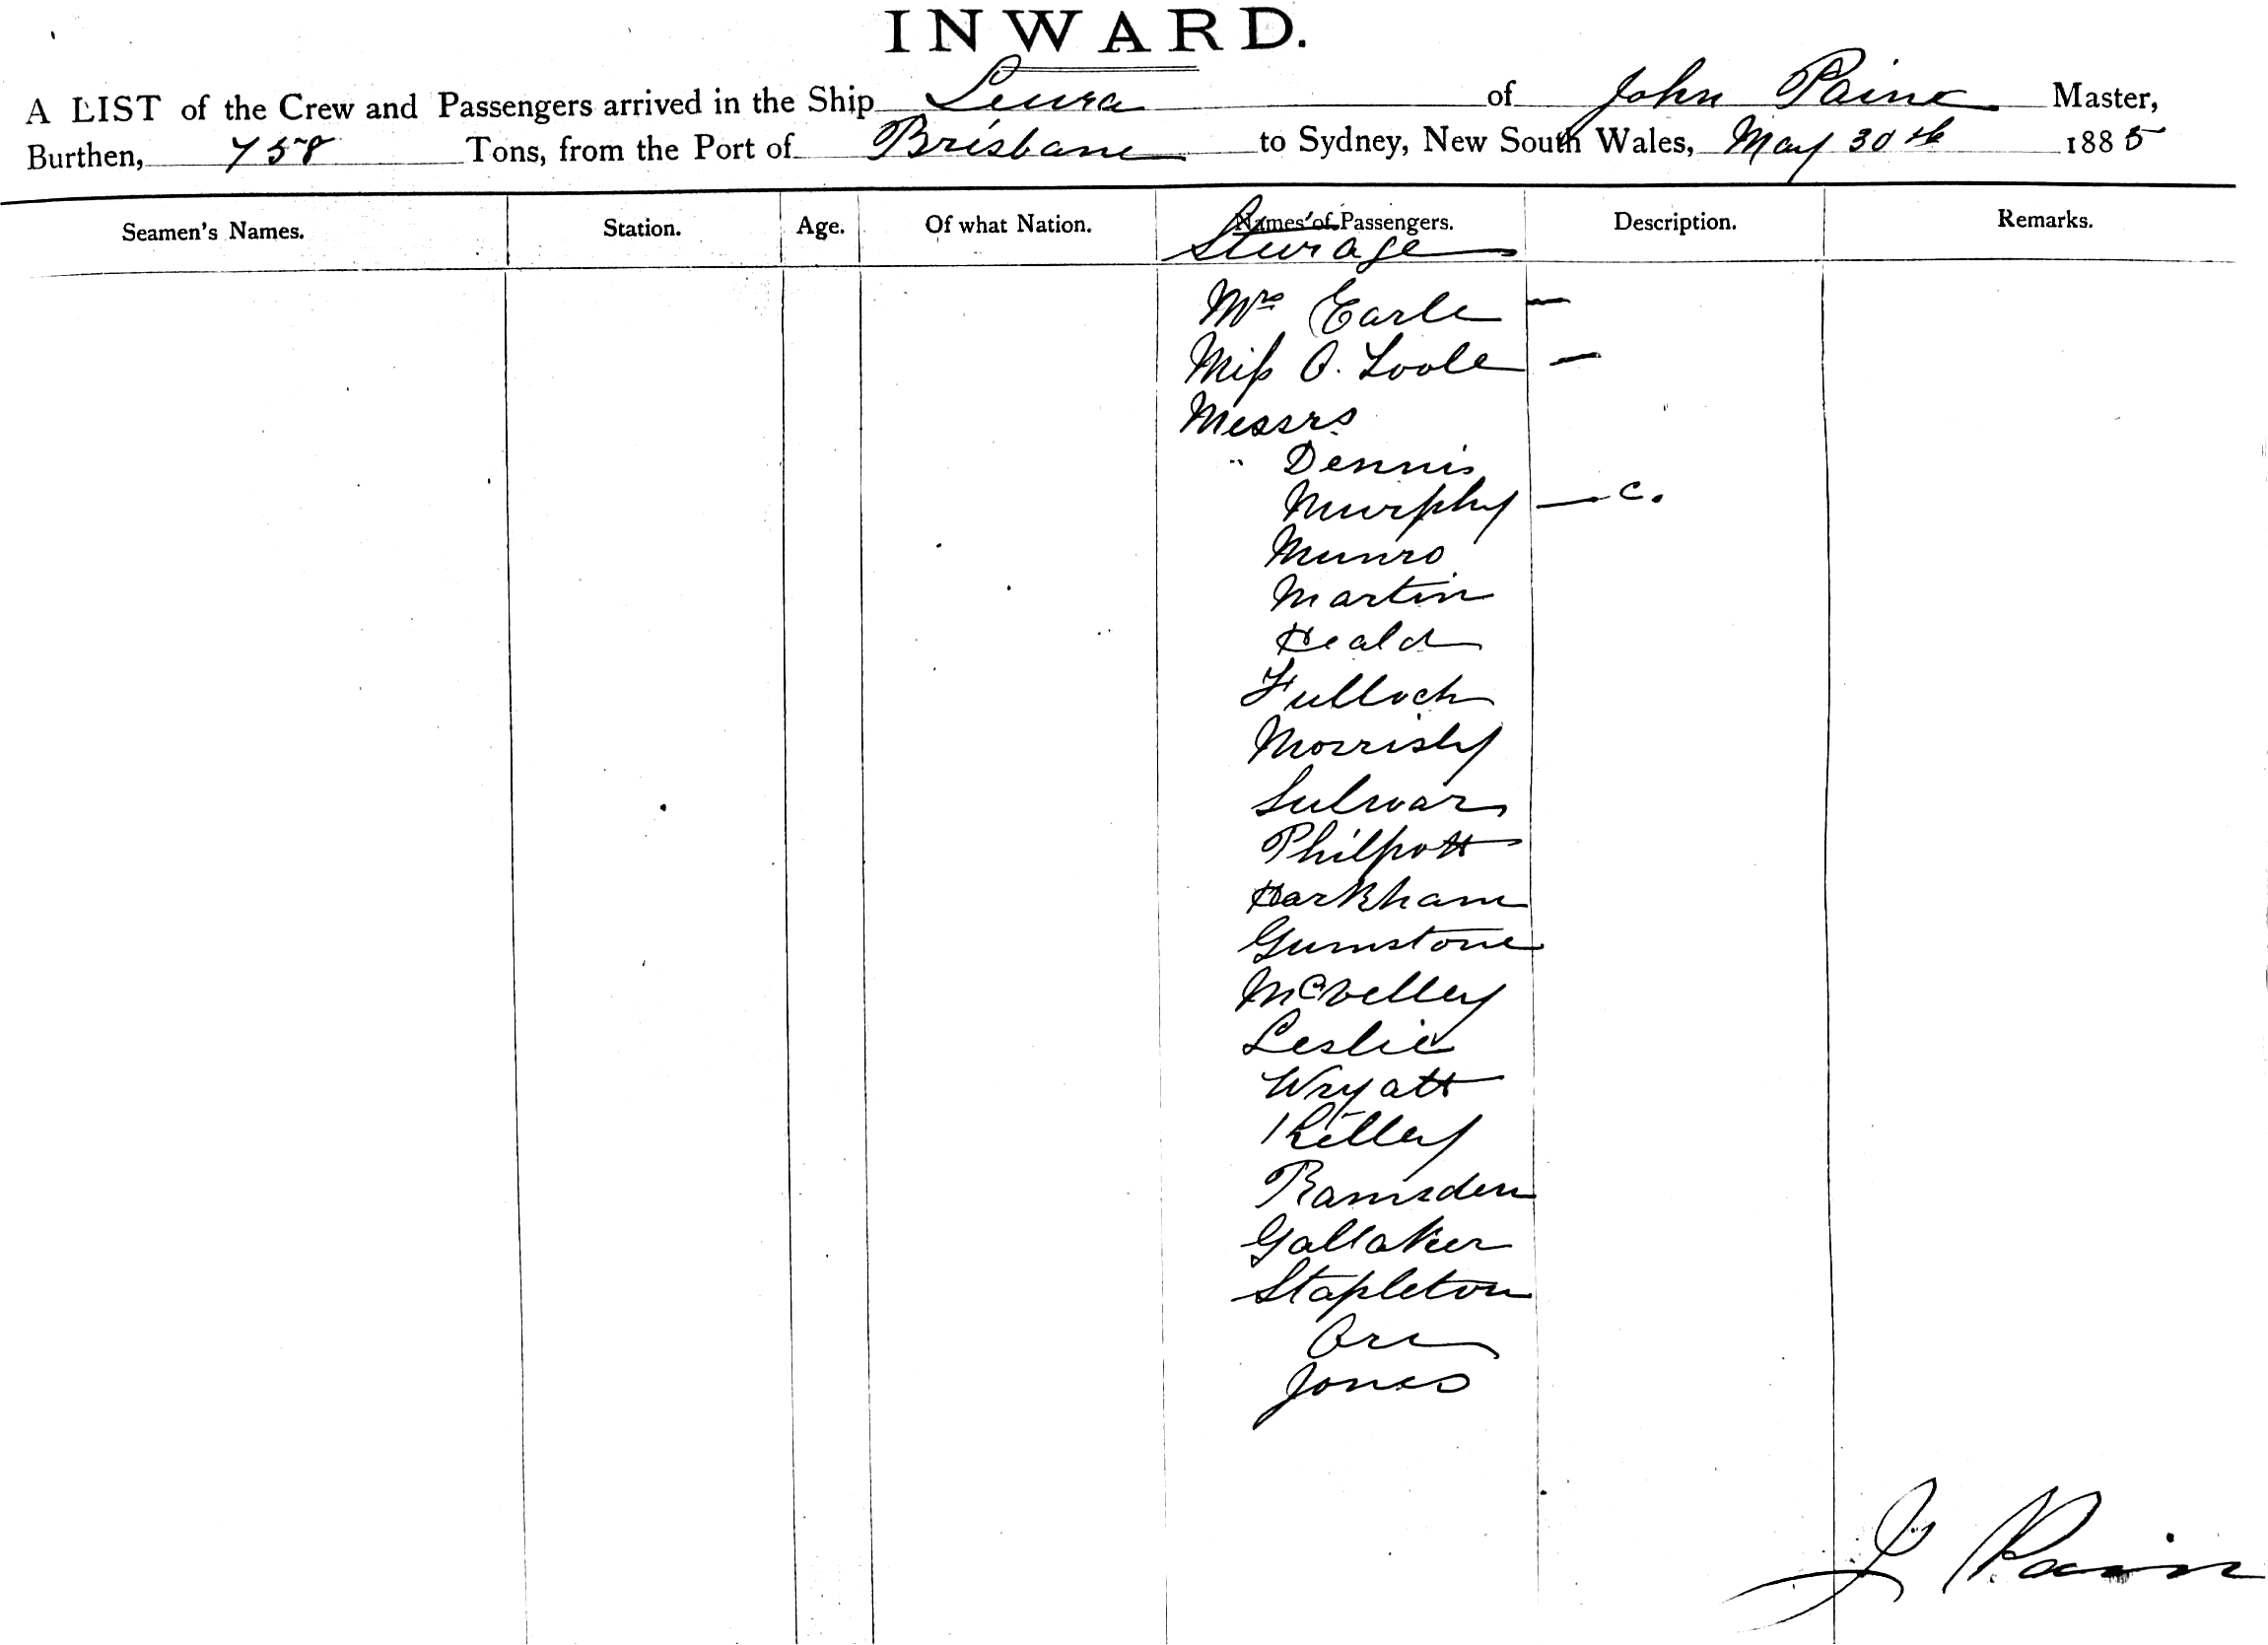 INWARD.
A LIST of the Crew and Passengers arrived in the Ship Leura of John Paine Master,
Burthen, 758 Tons, from the Port of Brisbane to Sydney, New South Wales, May 30th 1885
Seamen's Names. Station. Age. Of what Nation. Names of Passengers. Description. Remarks.
Sturage
Mrs Earle —
Miss O. Toole —
Messrs
" Dennis
Murphy — c.
Munro
Martin
Heald
Tulloch
Morrisly
Philpott
Harkham
Gumstone
Leslie
Wryatt
Kelley
Ramsden
Gallaker
Stapleton
Orr
Jones
J Paine